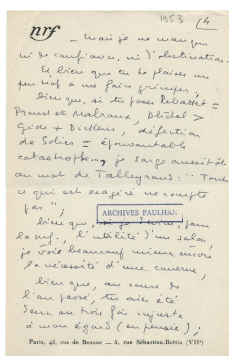 1953 (4
nrf
— mais je ne manque
ni de confiance, ni d'obstination.
Et bien que tu te plaises un
peu trop à me faire grimper,
bien que, si tu poses Rebatet =
Proust et Malraux, Dhôtel >
Gide + Dickens, défection
de Solier = épouvantable
catastrophe, je songe aussitôt
au mot de Talleyrand : " Tout
ce qui est exagéré ne compte
pas ",
bien que, pour
la nrf, l'utilité d'un salon,
je voie beaucoup mieux encore
la nécessité d'une caverne,
bien que, au cours de
l'an passé, tu aies été
deux ou trois fois injuste
à mon égard (en pensée) ;
ARCHIVES PAULHAN
Paris, 43, rue de Beaune — 5, rue Sébastien-Bottin (VIIe)